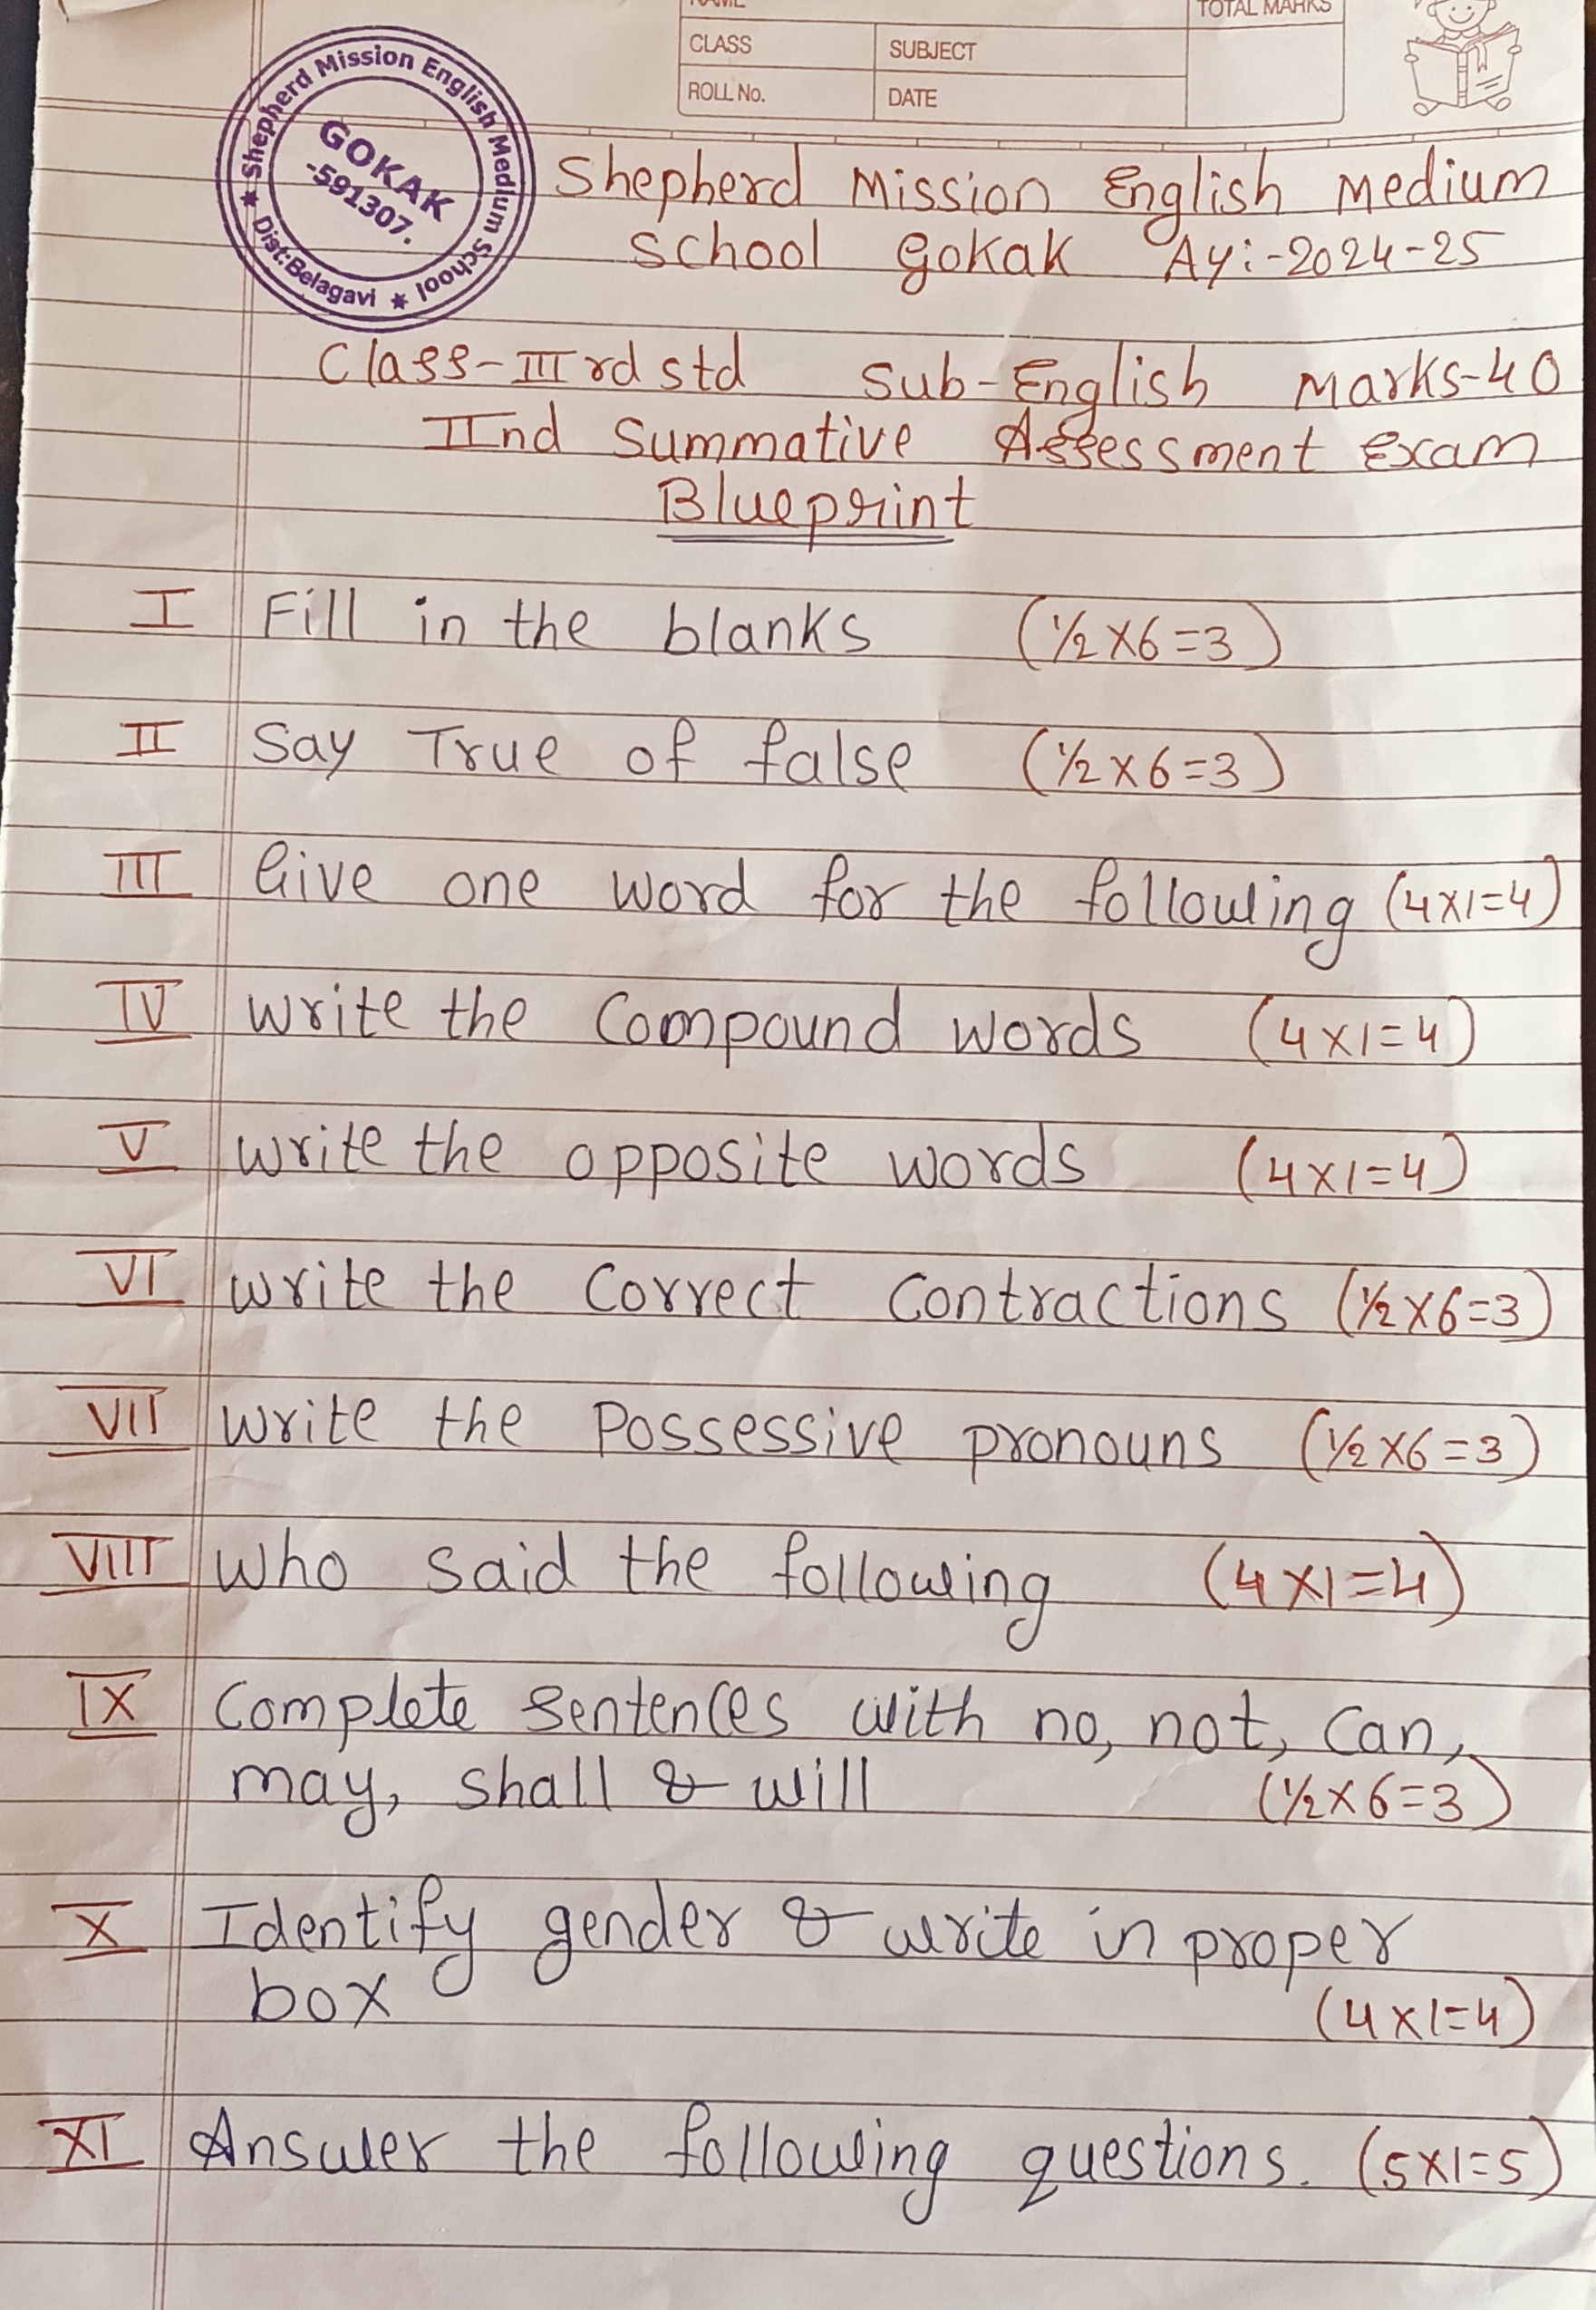 NAME
TOTAL MARKS
CLASS
SUBJECT
ROLL No.
DATE
★ Shepherd Mission English Medium School ★ Dist:Belagavi
GOKAK
-591307.
Shepherd Mission English Medium
School Gokak Ay:-2024-25
Class-III rd std Sub-English Marks-40
IInd Summative Assessment Exam
Blueprint
I Fill in the blanks (½ X6=3)
II Say True of false (½ X 6=3)
III Give one word for the following (4X1=4)
IV Write the Compound words (4 X1=4)
V Write the opposite words (4X1=4)
VI Write the Correct Contractions (½ X6=3)
VII Write the Possessive pronouns (½ X6=3)
VIII Who said the following (4 X1=4)
IX Complete Sentences with no, not, Can,
may, shall & will (½ X 6=3)
X Identify gender & write in proper
box (4 X1=4)
XI Answer the following questions. (5X1=5)